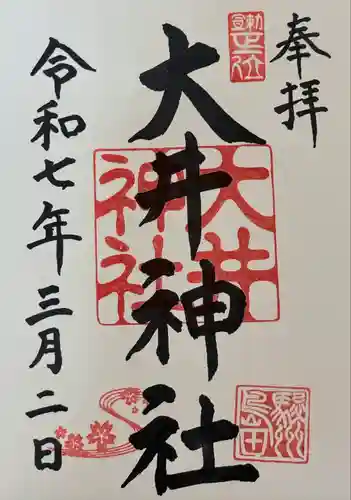 奉拝
勅宣正一位
大井神社
大井神社
駿州島田
令和七年三月二日